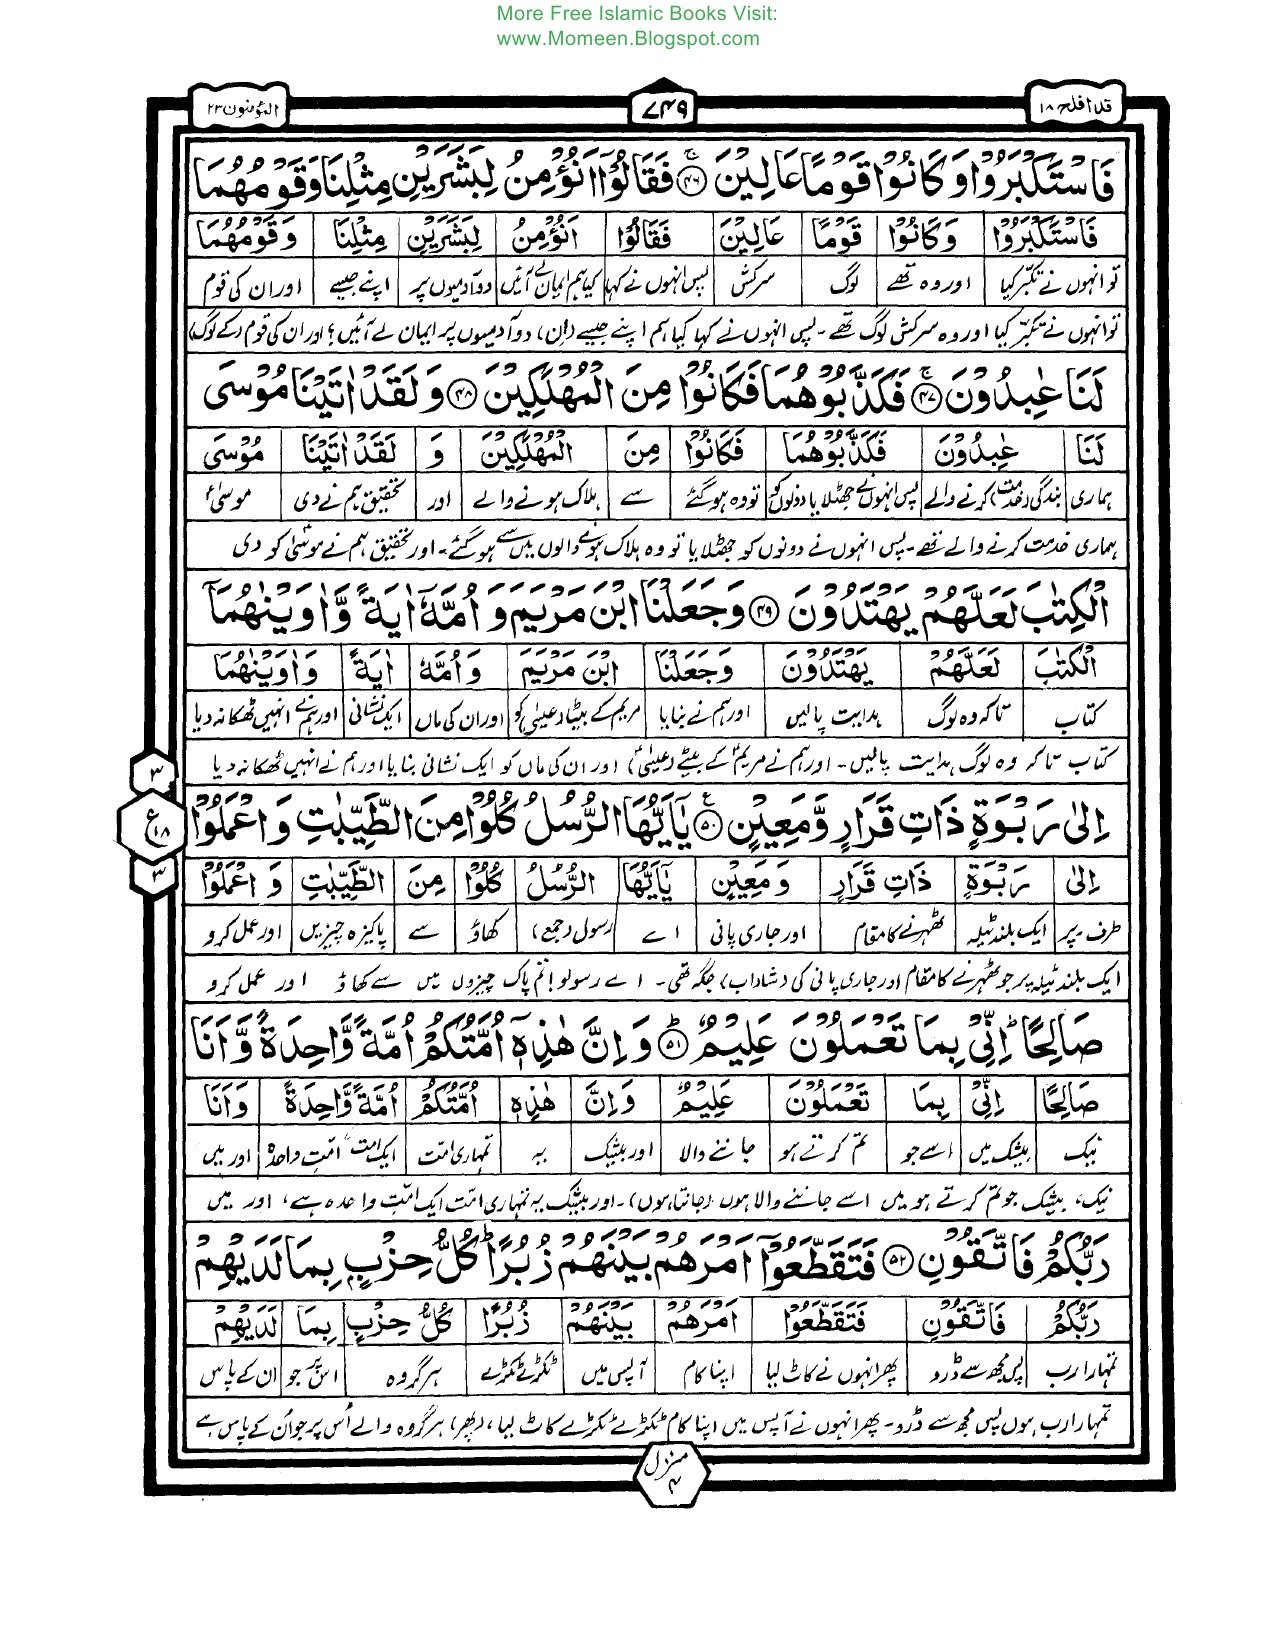 More Free Islamic Books Visit:
www.Momeen.Blogspot.com
قد افلح ۱۸
۷۴۹
المؤمنون ۲۳
فَاسْتَكْبَرُوْا وَكَانُوْا قَوْمًا عَالِيْنَ ﴿۴۶﴾ فَقَالُوْۤا اَنُؤْمِنُ لِبَشَرَيْنِ مِثْلِنَا وَقَوْمُهُمَا
فَاسْتَكْبَرُوْا وَكَانُوْا قَوْمًا عَالِيْنَ فَقَالُوْا اَنُؤْمِنُ لِبَشَرَيْنِ مِثْلِنَا وَقَوْمُهُمَا
تو انہوں نے تکبر کیا اور وہ تھے لوگ سرکش پس انہوں نے کہا کیا ہم ایمان لے آئیں دو آدمیوں پر اپنے جیسے اور ان کی قوم
تو انہوں نے تکبّر کیا اور وہ سرکش لوگ تھے۔ پس انہوں نے کہا کیا ہم اپنے جیسے (ان) دو آدمیوں پر ایمان لے آئیں؟ اور ان کی قوم (کے لوگ)
لَنَا عٰبِدُوْنَ ﴿۴۷﴾ فَكَذَّبُوْهُمَا فَكَانُوْا مِنَ الْمُهْلَكِيْنَ ﴿۴۸﴾ وَلَقَدْ اٰتَيْنَا مُوْسَى
لَنَا عٰبِدُوْنَ فَكَذَّبُوْهُمَا فَكَانُوْا مِنَ الْمُهْلَكِيْنَ وَ لَقَدْ اٰتَيْنَا مُوْسَى
ہماری بندگی (خدمت) کرنے والے پس انہوں نے جھٹلایا دونوں کو تو وہ ہوگئے سے ہلاک ہونے والے اور تحقیق ہم نے دی موسیٰؑ
ہماری خدمت کرنے والے تھے۔ پس انہوں نے دونوں کو جھٹلایا تو وہ ہلاک ہونے والوں میں سے ہوگئے۔ اور تحقیق ہم نے موسیٰؑ کو دی
الْكِتٰبَ لَعَلَّهُمْ يَهْتَدُوْنَ ﴿۴۹﴾ وَجَعَلْنَا ابْنَ مَرْيَمَ وَاُمَّهٗۤ اٰيَةً وَّاٰوَيْنٰهُمَاۤ
الْكِتٰبَ لَعَلَّهُمْ يَهْتَدُوْنَ وَجَعَلْنَا ابْنَ مَرْيَمَ وَاُمَّهٗ اٰيَةً وَاٰوَيْنٰهُمَا
کتاب تاکہ وہ لوگ ہدایت پالیں اور ہم نے بنایا مریم کے بیٹا (عیسیٰؑ) کو اور ان کی ماں ایک نشانی اور ہم نے انہیں ٹھکانہ دیا
کتاب تاکہ وہ لوگ ہدایت پالیں۔ اور ہم نے مریمؑ کے بیٹے (عیسیٰؑ) اور ان کی ماں کو ایک نشانی بنایا اور ہم نے انہیں ٹھکانہ دیا
۳
ع
۱۸
۳
اِلٰى رَبْوَةٍ ذَاتِ قَرَارٍ وَّمَعِيْنٍ ﴿۵۰﴾ يٰۤاَيُّهَا الرُّسُلُ كُلُوْا مِنَ الطَّيِّبٰتِ وَاعْمَلُوْا
اِلٰى رَبْوَةٍ ذَاتِ قَرَارٍ وَمَعِيْنٍ يٰۤاَيُّهَا الرُّسُلُ كُلُوْا مِنَ الطَّيِّبٰتِ وَاعْمَلُوْا
طرف پر ایک بلند ٹیلہ ٹھہرنے کا مقام اور جاری پانی اے رسول (جمع) کھاؤ سے پاکیزہ چیزیں اور عمل کرو
ایک بلند ٹیلہ پر جو ٹھہرنے کا مقام اور جاری پانی کی (شاداب) جگہ تھی۔ اے رسولو! تم پاک چیزوں میں سے کھاؤ اور عمل کرو
صَالِحًا ؕ اِنِّىْ بِمَا تَعْمَلُوْنَ عَلِيْمٌ ﴿۵۱﴾ وَاِنَّ هٰذِهٖۤ اُمَّتُكُمْ اُمَّةً وَّاحِدَةً وَّاَنَا
صَالِحًا اِنِّىْ بِمَا تَعْمَلُوْنَ عَلِيْمٌ وَاِنَّ هٰذِهٖ اُمَّتُكُمْ اُمَّةً وَّاحِدَةً وَاَنَا
نیک بیشک میں اسے جو تم کرتے ہو جاننے والا اور بیشک یہ تمہاری امت ایک امت، امتِ واحدہ اور میں
نیک، بیشک جو تم کرتے ہو میں اسے جاننے والا ہوں (جانتا ہوں)۔ اور بیشک یہ تمہاری امّت ایک امّتِ واحدہ ہے، اور میں
رَبُّكُمْ فَاتَّقُوْنِ ﴿۵۲﴾ فَتَقَطَّعُوْۤا اَمْرَهُمْ بَيْنَهُمْ زُبُرًا ؕ كُلُّ حِزْبٍۭ بِمَا لَدَيْهِمْ
رَبُّكُمْ فَاتَّقُوْنِ فَتَقَطَّعُوْا اَمْرَهُمْ بَيْنَهُمْ زُبُرًا كُلُّ حِزْبٍ بِمَا لَدَيْهِمْ
تمہارا رب پس مجھ سے ڈرو پھر انہوں نے کاٹ لیا اپنا کام آپس میں ٹکڑے ٹکڑے ہر گروہ اس پر جو ان کے پاس
تمہارا رب ہوں پس مجھ سے ڈرو۔ پھر انہوں نے آپس میں اپنا کام ٹکڑے ٹکڑے کاٹ لیا، (پھر) ہر گروہ والے اُس پر جو اُن کے پاس ہے
منزل
۴